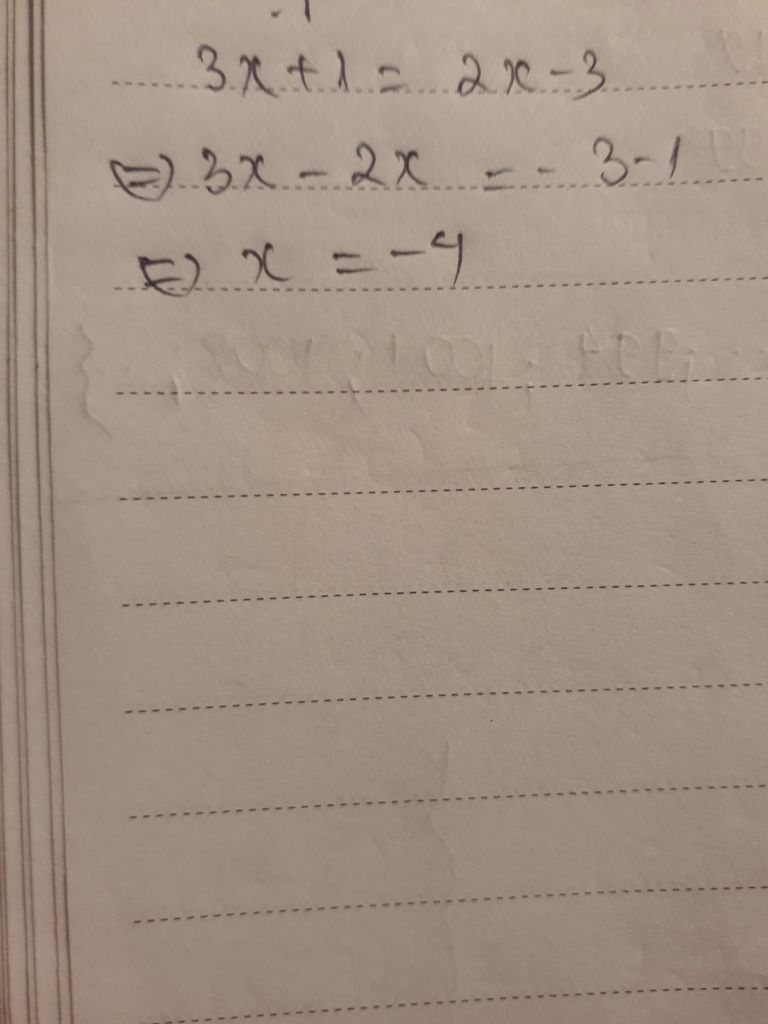 3x + 1 = 2x - 3
⇔ 3x - 2x = - 3 - 1
⇔ x = - 4